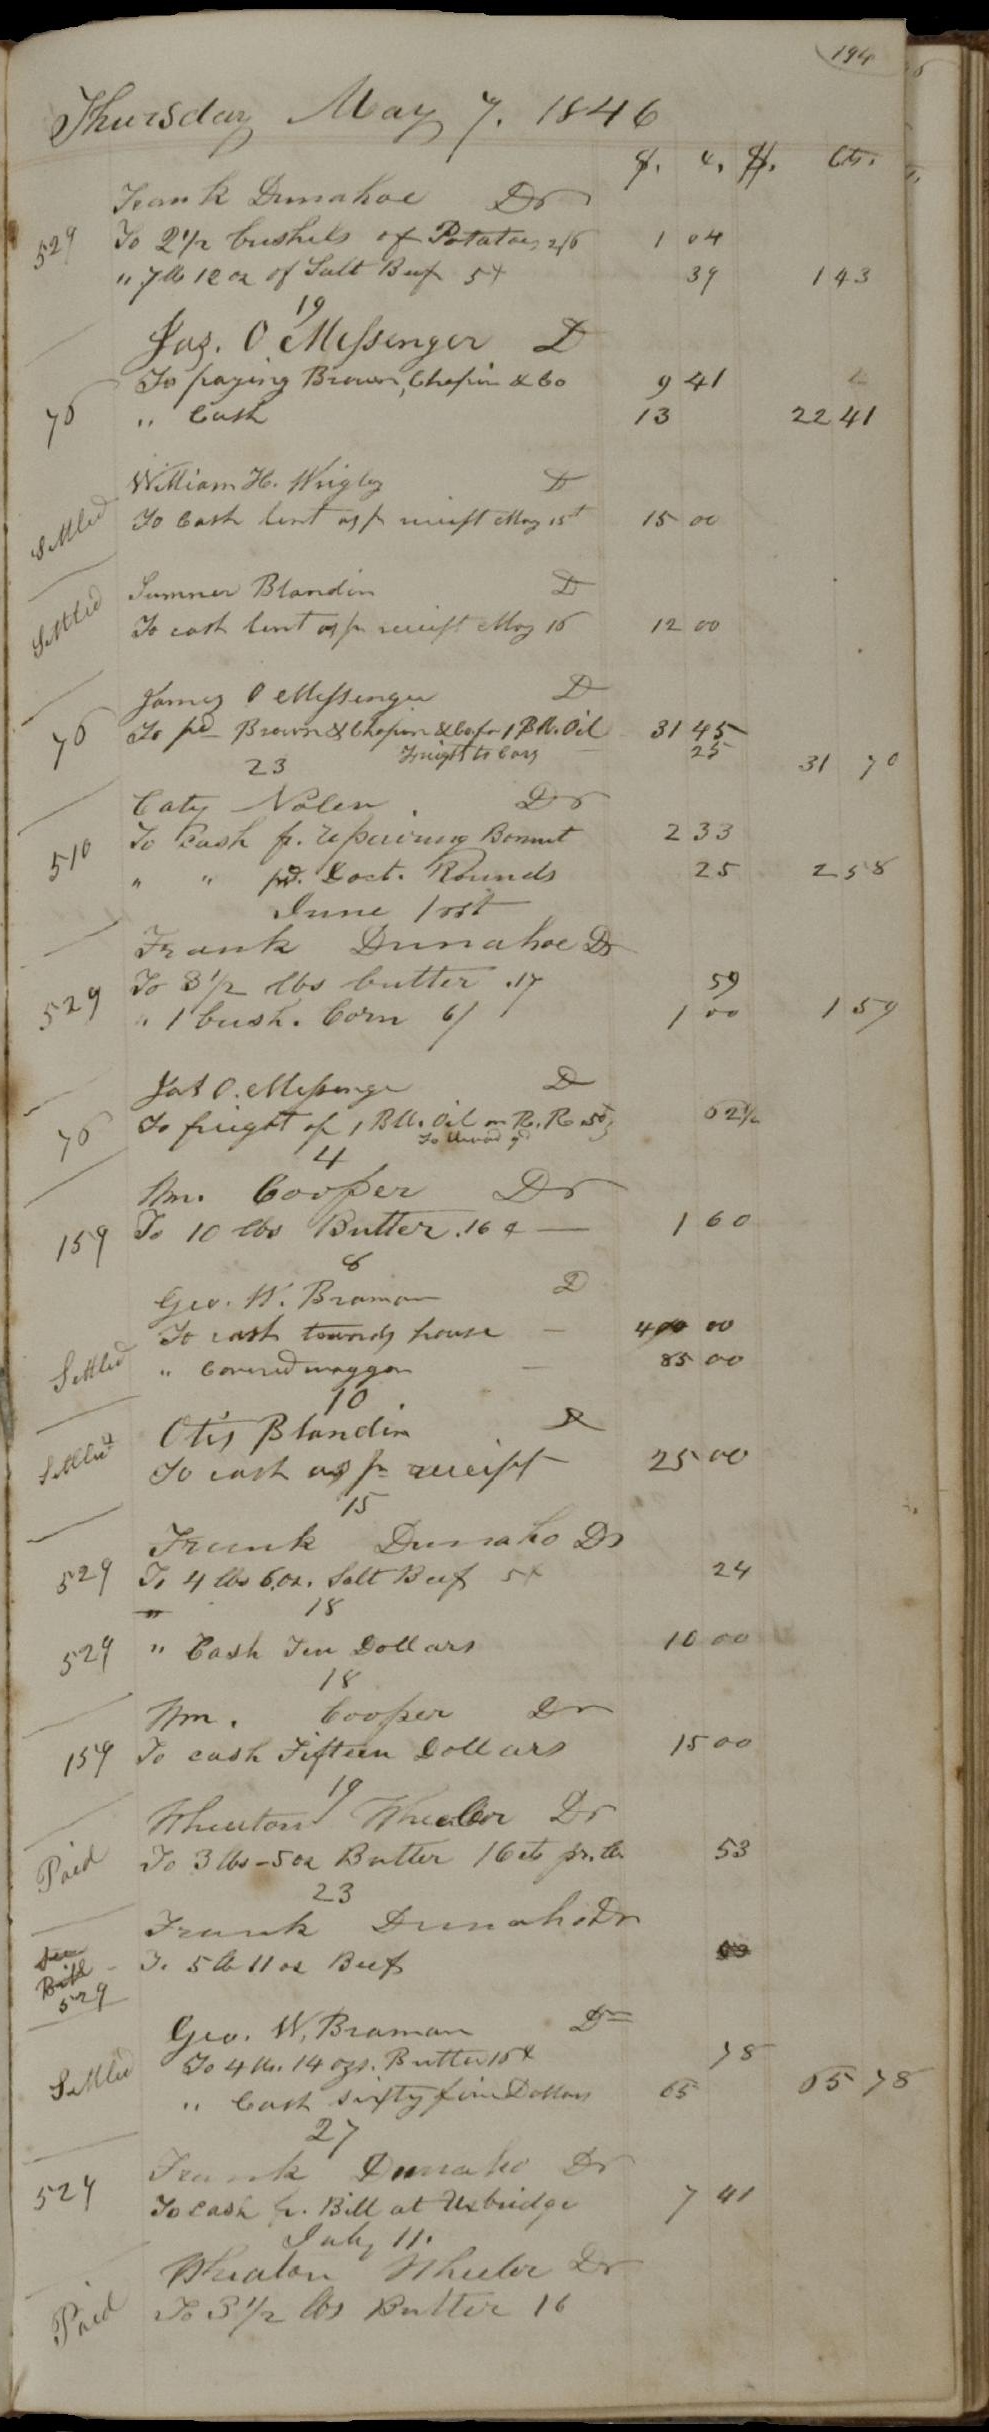 194
Thursday May 7. 1846
$. c. $. Cts.
Frank Dunahoe Dr
529 To 2 1/2 bushels of Potatoes 2/6 1 04
" 7 lb 12 oz of Salt Beef 5 39 1 43
19
Jas. O Messenger D
To paying Brown, Chapin & Co 9 41
76 " Cash 13 22 41
William H. Wrigley D
Settled To Cash lent as pr receipt May 15t 15 00
Sumner Blandin D
Settled To cash lent as pr receipt May 16 12 00
James O Messenger D
76 To pd Brown & Chapin & Co for 1 Bll. Oil 31 45
Freight to Cars 25 31 70
23
Caty Nolen Dr
510 To Cash pr. repairing Bonnet 2 33
" " pd. Doct. Rounds 25 2 58
June 1st
Frank Dunahoe Dr
529 To 3 1/2 lbs butter .17 59
" 1 bush. Corn 6/ 1 00 1 59
Jas O. Messenge D
76 To freight of 1 Bll. Oil on R. R. 50
To 62 1/2
4
Wm. Cooper Dr
159 To 10 lbs Butter .16 ¢ 1 60
8
Geo. W. Braman D
To cash towards house 400 00
Settled " Covered waggon 85 00
10
Otis Blandin D
Settled To cash as pr receipt 25 00
15
Frank Dunaho Dr
529 To 4 lbs 6 oz. Salt Beef 5 24
" 18
529 " Cash Ten Dollars 10 00
18
Wm. Cooper Dr
159 To cash Fifteen Dollars 15 00
19
Wheaton Wheeler Dr
Paid To 3 lbs - 5 oz Butter 16 cts pr. lb 53
23
Frank Dunaho Dr
See
Bill To 5 lb 11 oz Beef
529
Geo. W. Braman Dr
To 4 lbs. 14 ozs. Butter 16 78
Settled " Cash sixty five Dollars 65 65 78
27
Frank Dunaho Dr
529 To Cash pr. Bill at Uxbridge 7 41
July 11.
Wheaton Wheeler Dr
Paid To 3 1/2 lbs Butter 16